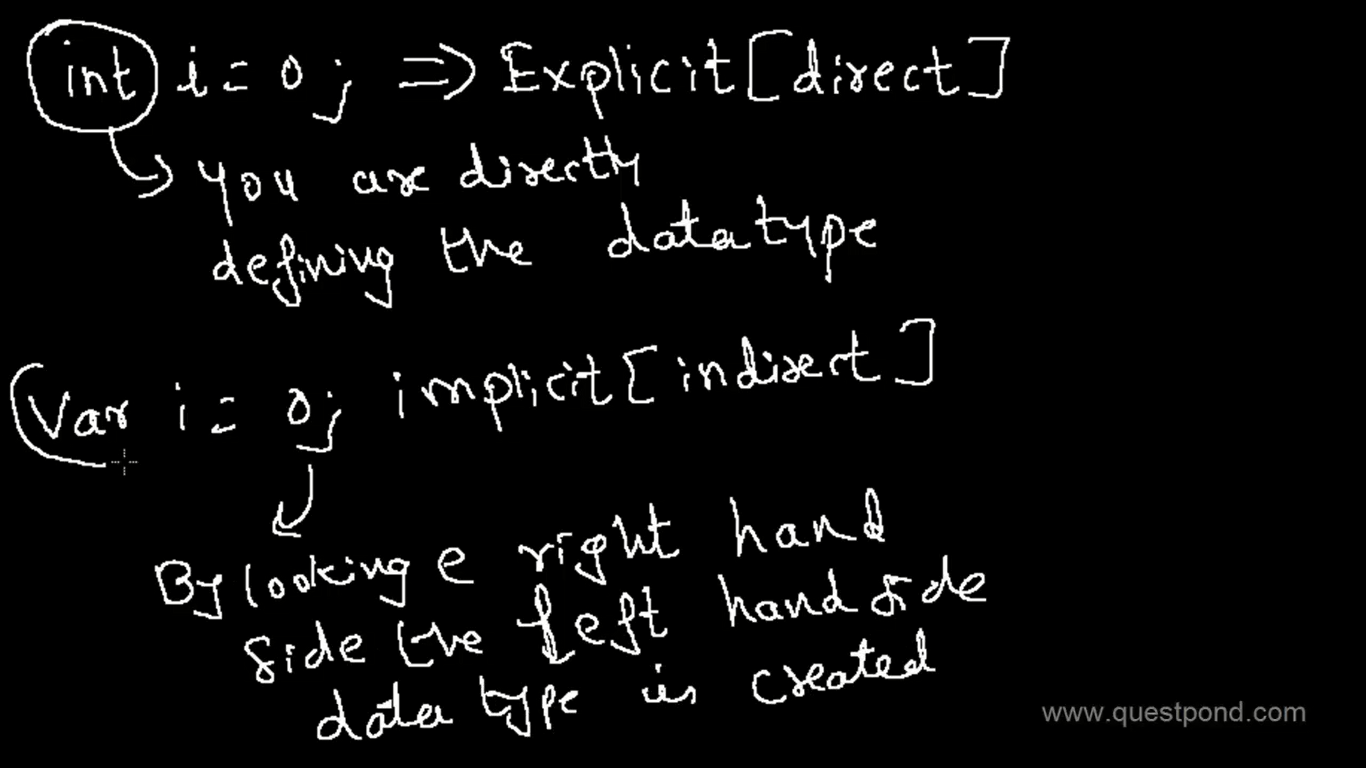 int i = 0; => Explicit[direct]
you are directly
defining the data type
Var i = 0; implicit[indirect]
By looking @ right hand
side the left hand side
data type is created
www.questpond.com